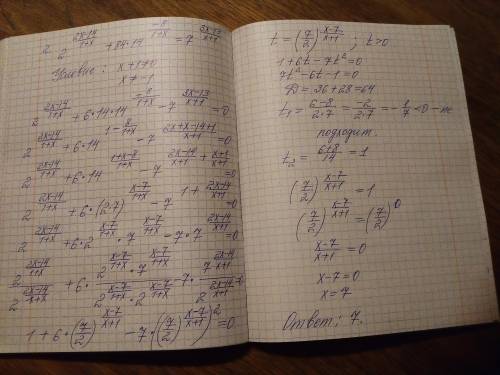 2^{\frac{2x-14}{1+x}} + 84 \cdot 14^{\frac{-8}{1+x}} = 7^{\frac{3x-13}{x+1}}
Условие: x+1≠0
x ≠ -1
2^{\frac{2x-14}{1+x}} + 6 \cdot 14 \cdot 14^{\frac{-8}{1+x}} - 7^{\frac{3x-13}{x+1}} = 0
2^{\frac{2x-14}{1+x}} + 6 \cdot 14^{1-\frac{8}{1+x}} - 7^{\frac{2x+x-14+1}{x+1}} = 0
2^{\frac{2x-14}{1+x}} + 6 \cdot 14^{\frac{1+x-8}{1+x}} - 7^{\frac{2x-14}{x+1}+\frac{x+1}{x+1}} = 0
2^{\frac{2x-14}{1+x}} + 6 \cdot (2 \cdot 7)^{\frac{x-7}{1+x}} - 7^{1+\frac{2x-14}{x+1}} = 0
2^{\frac{2x-14}{1+x}} + 6 \cdot 2^{\frac{x-7}{1+x}} \cdot 7^{\frac{x-7}{1+x}} - 7 \cdot 7^{\frac{2x-14}{x+1}} = 0
1 + 6 \cdot (\frac{7}{2})^{\frac{x-7}{x+1}} - 7 \cdot ((\frac{7}{2})^{\frac{x-7}{x+1}})^2 = 0
t = (\frac{7}{2})^{\frac{x-7}{x+1}} ; t>0
1+6t-7t²=0
7t²-6t-1=0
D=36+28=64
t₁ = \frac{6-8}{2 \cdot 7} = \frac{-2}{2 \cdot 7} = -\frac{1}{7} < 0 - не
подходит
t₂ = \frac{6+8}{14} = 1
(\frac{7}{2})^{\frac{x-7}{x+1}} = 1
(\frac{7}{2})^{\frac{x-7}{x+1}} = (\frac{7}{2})^0
\frac{x-7}{x+1} = 0
x-7=0
x=7
Ответ: 7.